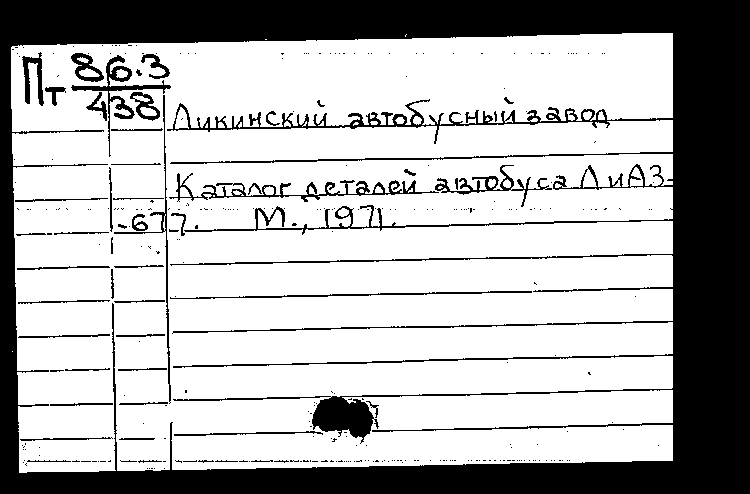 Пт 86.3
438
Ликинский автобусный завод
Каталог деталей автобуса ЛиАЗ-
-677. М., 1971.